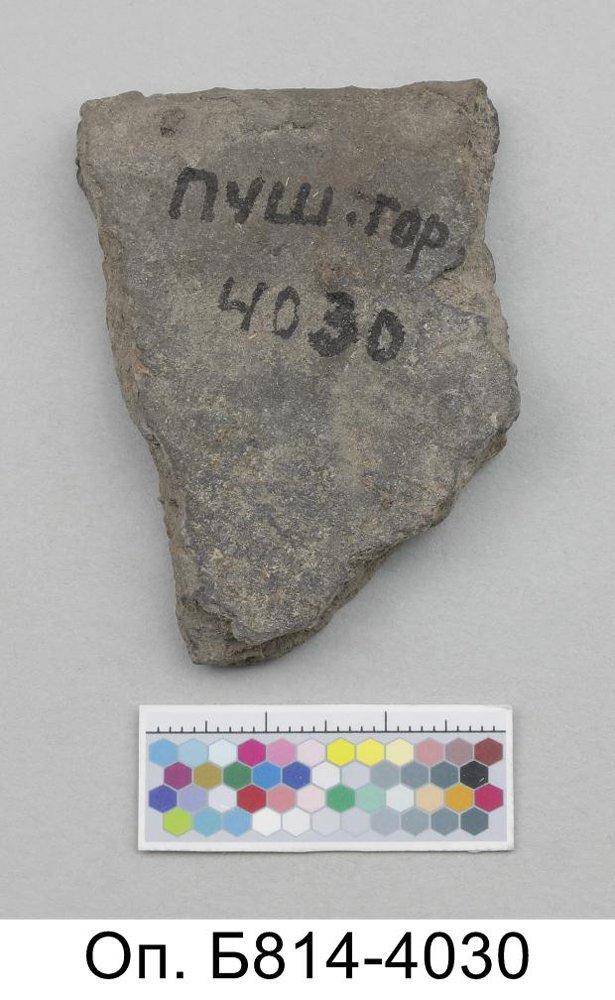 пуш.гор
4030
Оп. Б814-4030